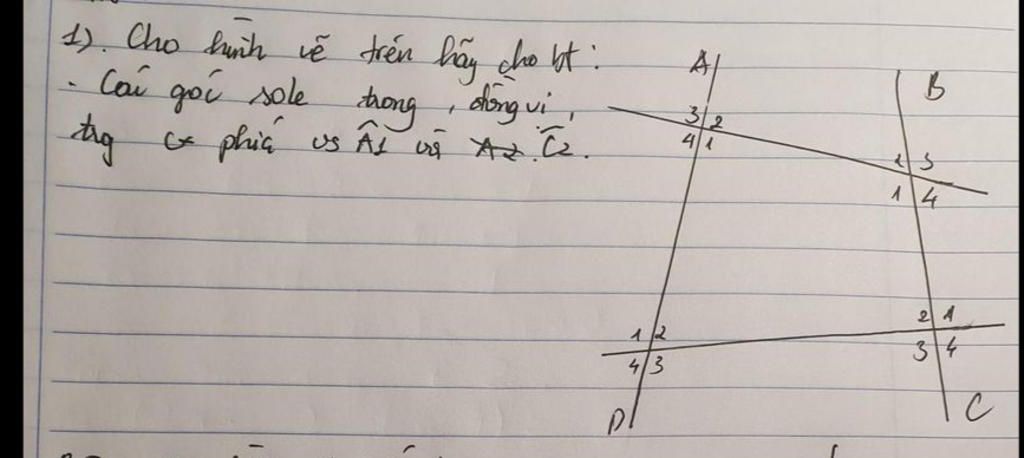 1). Cho hình vẽ trên hãy cho bt:
- Các góc sole trong, đồng vị,
trg cx phía vs Â1 và A2 Ĉ2.
A
B
3 2
4 1
2 3
1 4
1 2
4 3
2 1
3 4
D
C